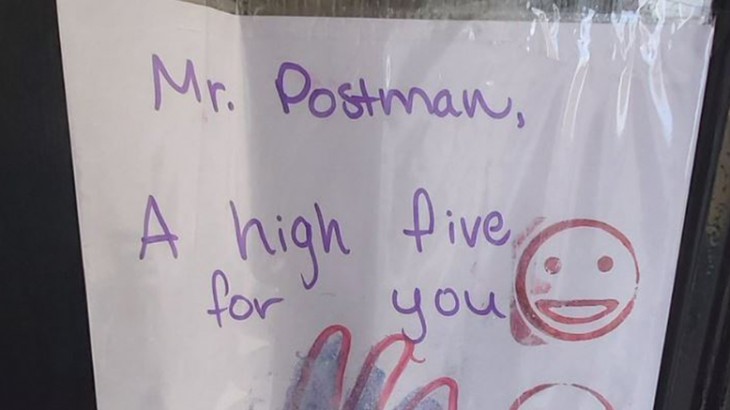 Mr. Postman,
A high five
for you